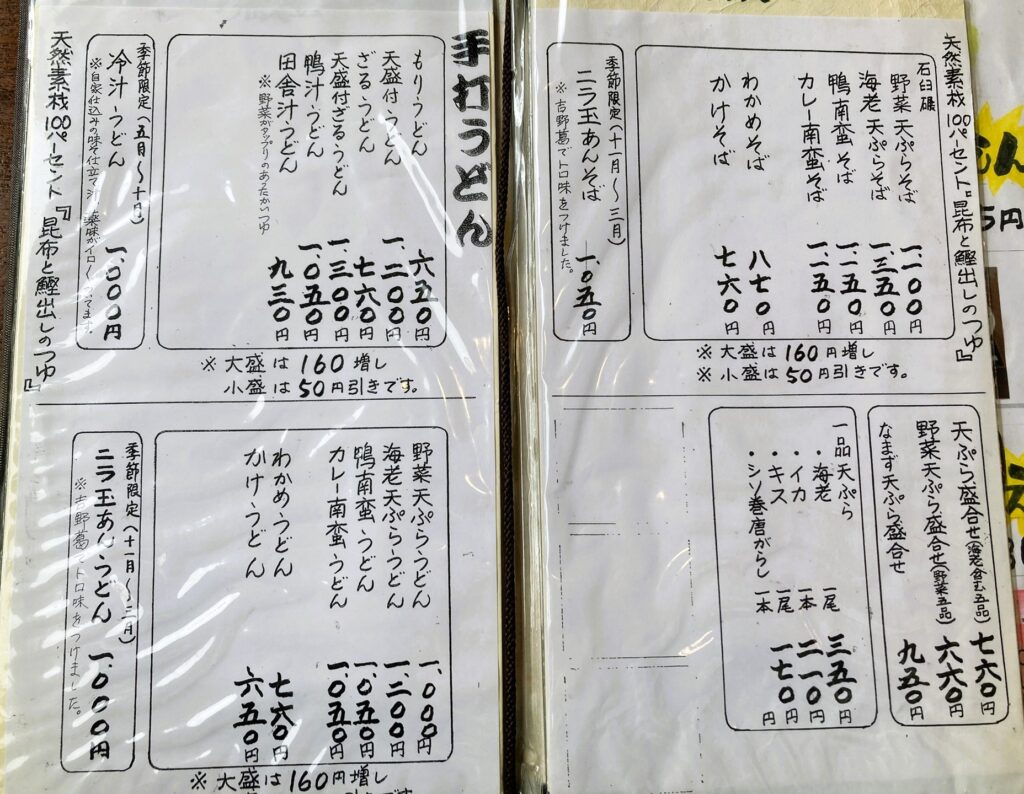 天然素材100パーセント『昆布と鰹出しのつゆ』
石臼碾
野菜天ぷらそば 一、一〇〇円
海老天ぷらそば 一、三五〇円
鴨南蛮そば 一、一五〇円
カレー南蛮そば 一、一五〇円
わかめそば 八七〇円
かけそば 七六〇円
季節限定(十一月〜三月)
ニラ玉あんそば 一、〇五〇円
※吉野葛でトロ味をつけました。
※大盛は160円増し
※小盛は50円引きです。
天ぷら盛合せ(海老含む五品) 七六〇円
野菜天ぷら盛合せ(野菜五品) 六六〇円
なまず天ぷら盛合せ 九五〇円
一品天ぷら
・海老 一尾 三五〇円
・イカ 一本 円
・キス 一尾 円
・シソ巻唐がらし 一本 円
手打うどん
もり・うどん 六五〇円
天盛付・うどん 一、二〇〇円
ざる・うどん 七六〇円
天盛付ざる・うどん 一、三〇〇円
鴨汁・うどん 一、〇五〇円
田舎汁・うどん 九三〇円
※野菜がタップリのあったかいつゆ
季節限定(五月〜十月)
冷汁・うどん 一、〇〇〇円
※自家仕込みの味そ仕立て汁 薬味がイロイロ
天然素材100パーセント『昆布と鰹出しのつゆ』
※大盛は160増し
小盛は50円引きです。
野菜天ぷらうどん 一、〇〇〇円
海老天ぷら・うどん 一、二〇〇円
鴨南蛮・うどん 一、〇五〇円
カレー南蛮・うどん 一、〇五〇円
わかめ・うどん 七六〇円
かけ・うどん 六五〇円
季節限定(十一月〜三月)
ニラ玉あん・うどん 一、〇〇〇円
※吉野葛でトロ味をつけました。
※大盛は160円増し
5円